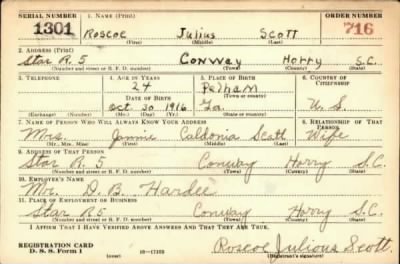 SERIAL NUMBER 1. NAME (Print) ORDER NUMBER
1301 Roscoe Julius Scott 716
(First) (Middle) (Last)
2. ADDRESS (Print)
Star R. 5 Conway Horry S.C.
(Number and street or R. F. D. number) (Town) (County) (State)
3. TELEPHONE 4. AGE IN YEARS 5. PLACE OF BIRTH 6. COUNTRY OF CITIZENSHIP
24 Pelham
DATE OF BIRTH (Town or county)
Oct 30 1916 Ga. U.S.
(Exchange) (Number) (Mo.) (Day) (Yr.) (State or country)
7. NAME OF PERSON WHO WILL ALWAYS KNOW YOUR ADDRESS 8. RELATIONSHIP OF THAT PERSON
Mrs. Jannie Caldonia Scott Wife
(Mr., Mrs., Miss) (First) (Middle) (Last)
9. ADDRESS OF THAT PERSON
Star R. 5 Conway Horry S.C.
(Number and street or R. F. D. number) (Town) (County) (State)
10. EMPLOYER'S NAME
Mr. D. B. Hardee
11. PLACE OF EMPLOYMENT OR BUSINESS
Star R5 Conway Horry S.C.
(Number and street or R. F. D. number) (Town) (County) (State)
I AFFIRM THAT I HAVE VERIFIED ABOVE ANSWERS AND THAT THEY ARE TRUE.
Roscoe Julious Scott
REGISTRATION CARD
D. S. S. Form 1 (over) (Registrant's signature)